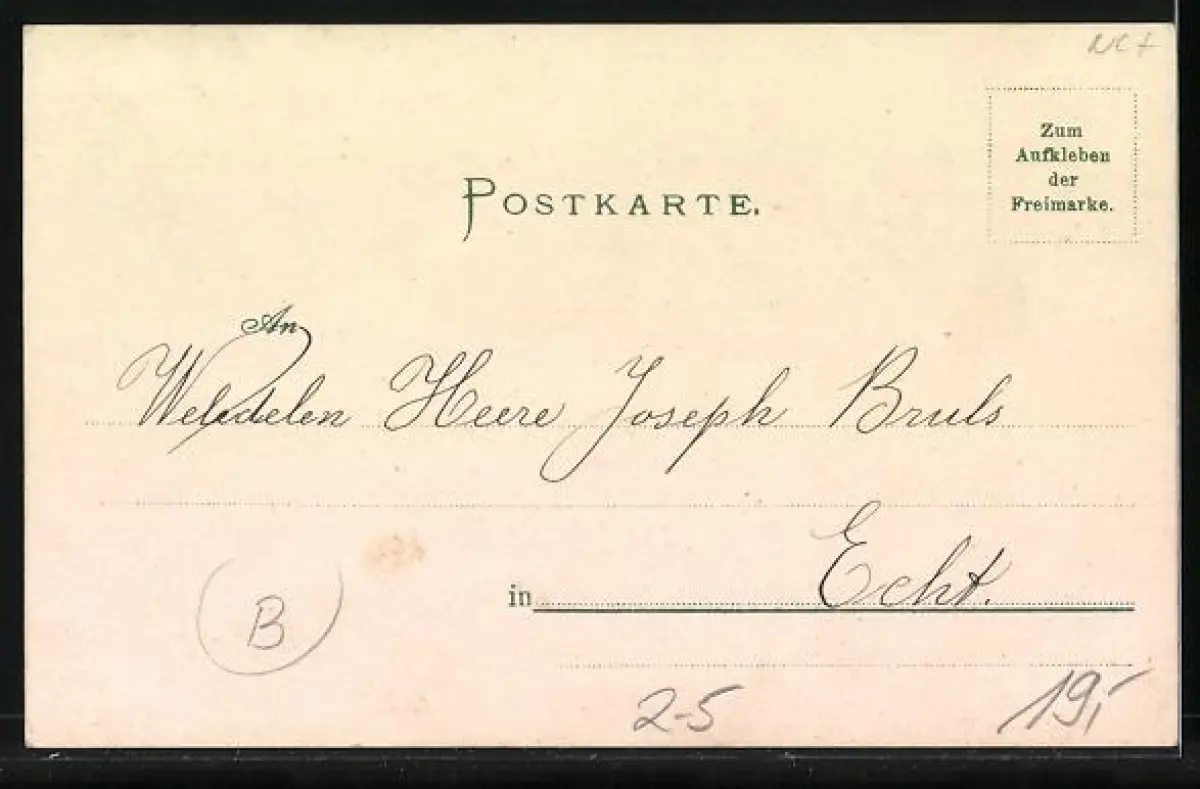 Zum
Aufkleben
der
Freimarke.
POSTKARTE.
An
Weledelen Heere Joseph Bruls
in Echt.
B
2-5
19,-